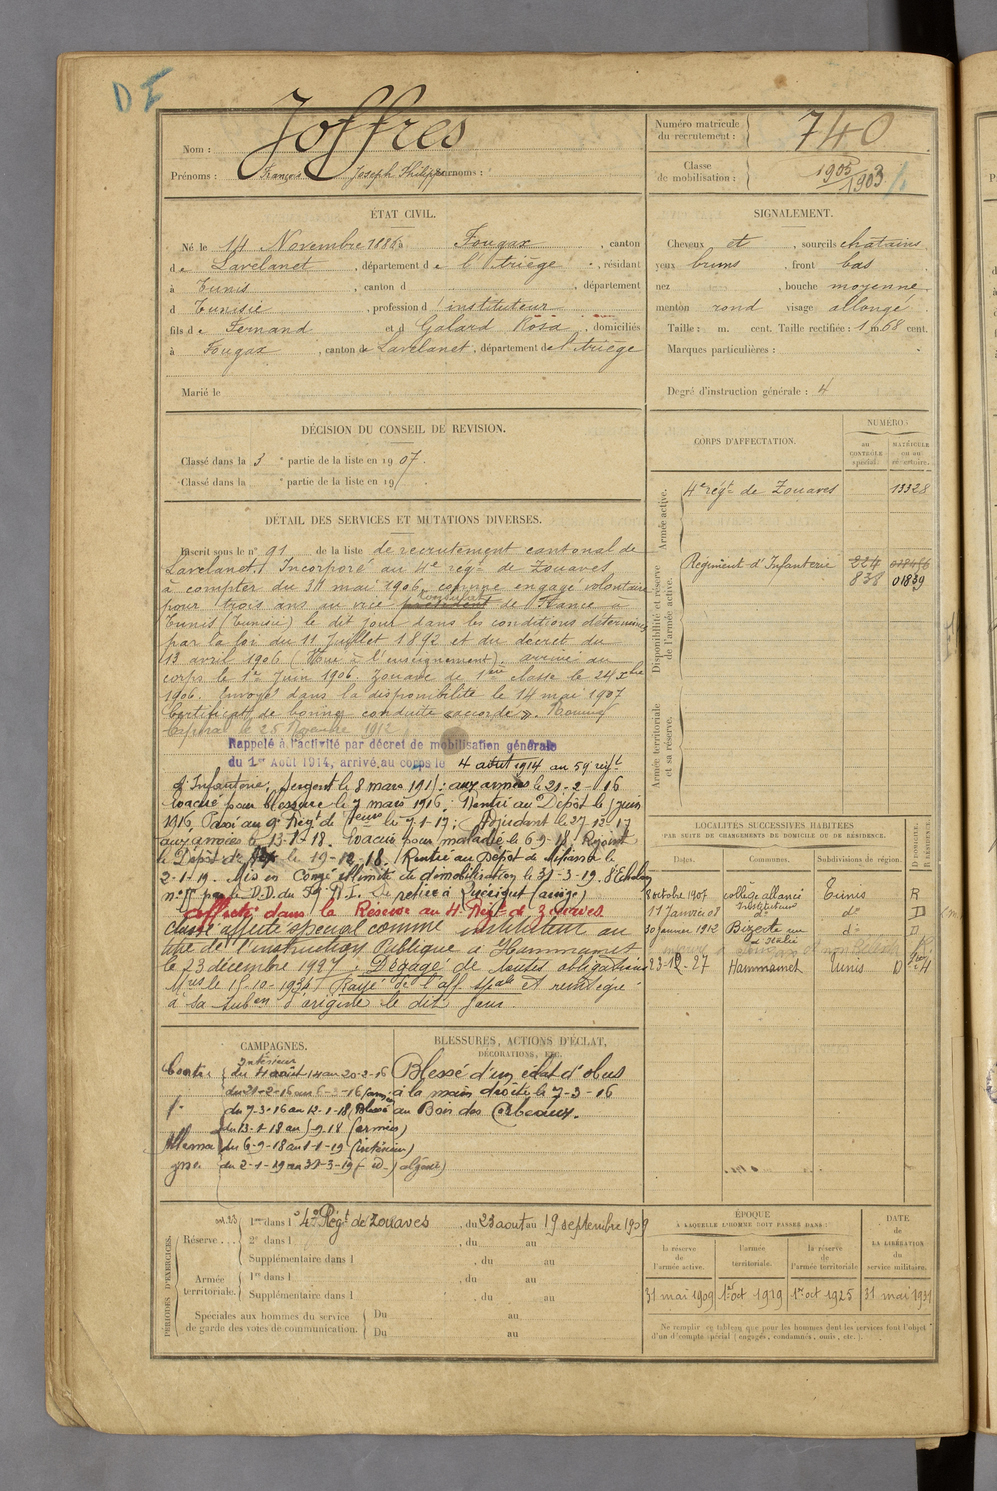 D I
Nom : Joffres
Prénoms : François Joseph Philippe Surnoms :
Numéro matricule du recrutement : 740
Classe de mobilisation : 1905 / 1903
ÉTAT CIVIL.
Né le 14 Novembre 1886 à Fougax , canton
de Lavelanet , département de l'Ariège , résidant
à Tunis , canton d , département
d Tunisie , profession d' instituteur
fils de Fernand et d Galard Rosa , domiciliés
à Fougax , canton de Lavelanet , département de l'Ariège
Marié le
SIGNALEMENT.
Cheveux et , sourcils chatains
yeux bruns , front bas
nez , bouche moyenne
menton rond visage allongé
Taille : m. cent. Taille rectifiée : 1 m. 68 cent.
Marques particulières :
Degré d'instruction générale : 4
DÉCISION DU CONSEIL DE REVISION.
Classé dans la 3 e partie de la liste en 1907.
Classé dans la e partie de la liste en 19
DÉTAIL DES SERVICES ET MUTATIONS DIVERSES.
Inscrit sous le n° 91 de la liste de recrutement cantonal de
Lavelanet. Incorporé au 4e régt de Zouaves
à compter du 31 mai 1906, comme engagé volontaire
pour trois ans au vice consulat de France à
Tunis (Tunisie) le dit jour dans les conditions déterminées
par la loi du 11 Juillet 1892 et du décret du
13 avril 1906 (Vue à l'enseignement). arrivé au
corps le 1er Juin 1906. Zouave de 1ère classe le 24 Xbre
1906. Envoyé dans la disponibilité le 14 mai 1907
Certificat de bonne conduite "accordé". Nommé
Caporal le 25 Novembre 1912
Rappelé à l'activité par décret de mobilisation générale
du 1er Août 1914, arrivé au corps le 4 août 1914 au 59 régt
d'Infanterie; Sergent le 8 mars 1915 : aux armées le 21-2-16
Evacué pour blessure le 7 mars 1916; Rentré au Dépôt le juin
1916 Passé au 9e Régt de le 7-1-17; Adjudant le 27
aux armées le 13-1-18. Evacué pour maladie le 6-9-18; Rejoint
le Dépôt de le 19-12-18. Rentré au Dépôt de le
2-1-19. Mis en Congé illimité de démobilisation le 31-3-19. 8e Echelon
n° par le D.D. du 59 R.I. Se retire à Quérigut (Ariège)
Affecté dans la Réserve au 4 Régt de Zouaves
Classé affecté spécial comme instituteur au
titre de l'instruction Publique à Hammamet
le 23 décembre 1927. Dégagé de toutes obligations
Mres le 15-10-1936 Rayé de l'aff. spale et réintégré
à sa subon d'origine le dit jour.
CORPS D'AFFECTATION.
NUMÉRO :
au CONTRÔLE spécial.
MATRICULE ou au répertoire.
Armée active.
4e régt de Zouaves 13328
Disponibilité et réserve de l'armée active.
Régiment d'Infanterie 224 018456
838 01839
Armée territoriale et sa réserve.
LOCALITÉS SUCCESSIVES HABITÉES
(PAR SUITE DE CHANGEMENTS DE DOMICILE OU DE RÉSIDENCE.
Dates. Communes. Subdivisions de région. D DOMICILE. R RÉSIDENCE.
8 octobre 1907 collège allaoui Tunis R
11 Janvier 08 Instituteur do do D
30 janvier 1912 Bizerte do D
23-12-27 Hammamet Tunis D
CAMPAGNES.
Contre l'Allemagne
Intérieur
du 4 août 14 au 20-2-16
du 21-2-16 au 6-3-16 (armées)
du 7-3-16 au 12-1-18 (Blessé)
du 13-1-18 au 5-9-18 (armées)
du 6-9-18 au 1-1-19 (intérieur)
du 2-1-19 au 31-3-19 (- id - algérie)
BLESSURES, ACTIONS D'ÉCLAT,
DÉCORATIONS, ETC.
Blessé d'un éclat d'obus
à la main droite le 7-3-16
au Bois des Corbeaux.
PÉRIODES D'EXERCICES.
Réserve...
art. 23 1re dans l 4e Régt de Zouaves , du 23 aout au 19 septembre 1909
2e dans l , du au
Supplémentaire dans l , du au
Armée territoriale.
1re dans l , du au
Supplémentaire dans l , du au
Spéciales aux hommes du service de garde des voies de communication.
Du au
Du au
ÉPOQUE
À LAQUELLE L'HOMME DOIT PASSER DANS :
la réserve de l'armée active.
l'armée territoriale.
la réserve de l'armée territoriale
DATE de LA LIBÉRATION du service militaire.
31 mai 1909 1er oct 1919 1er oct 1925 31 mai 1931
Ne remplir ce tableau que pour les hommes dont les services font l'objet
d'un décompte spécial (engagés, condamnés, omis, etc.).